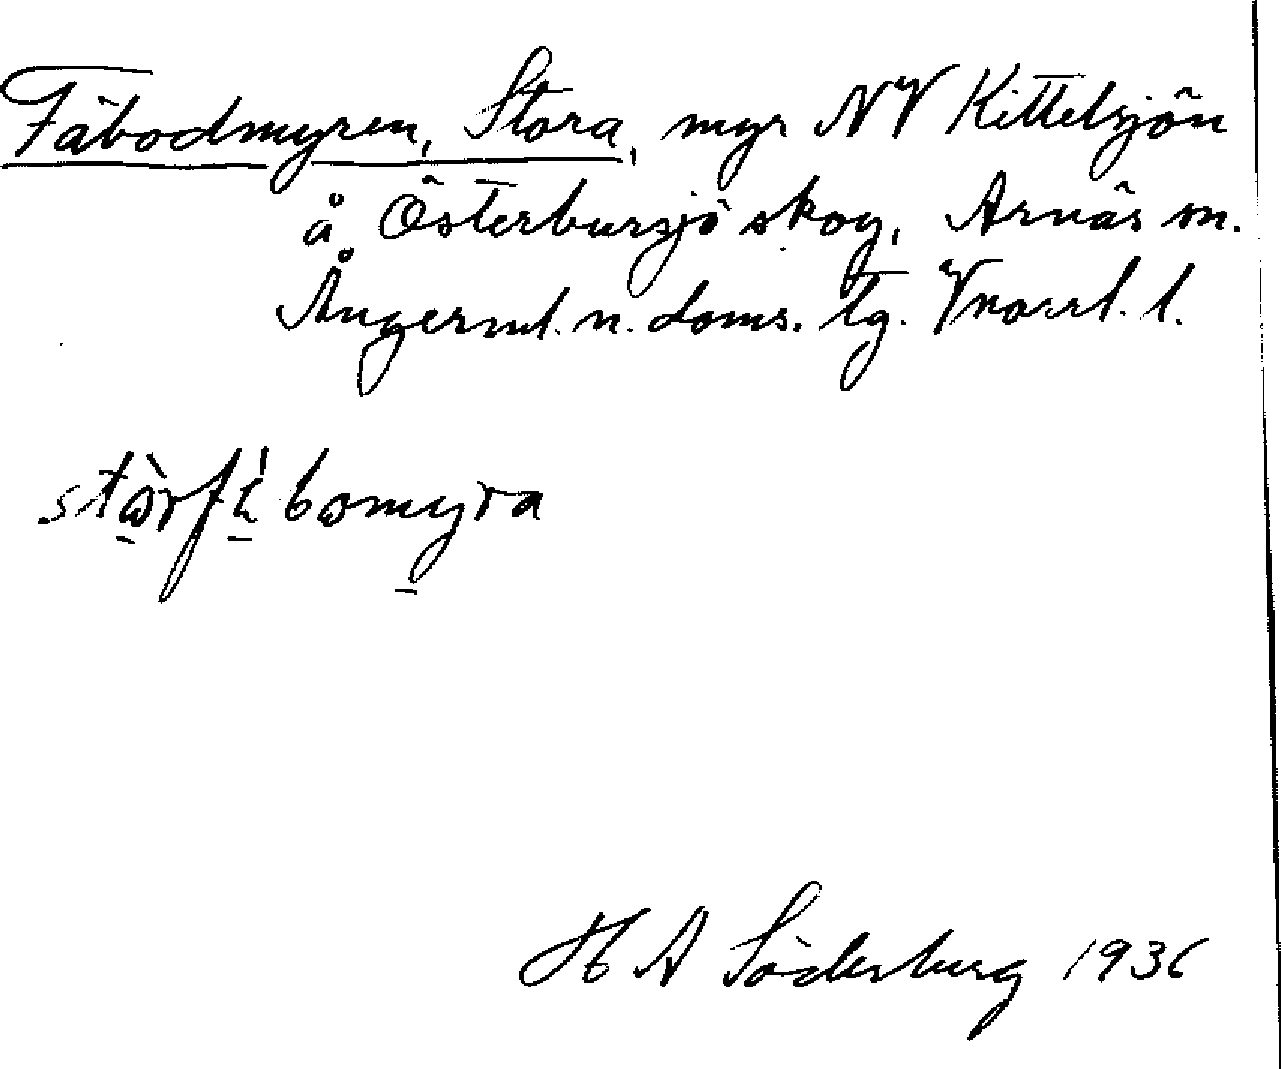 Fäbodmyren, Stora, myr NV Kittelsjön
å Österbursjö skog, Arnäs sn.
Ångerml. n. doms. tg. Vnorrl. l.
H A Söderburg 1936